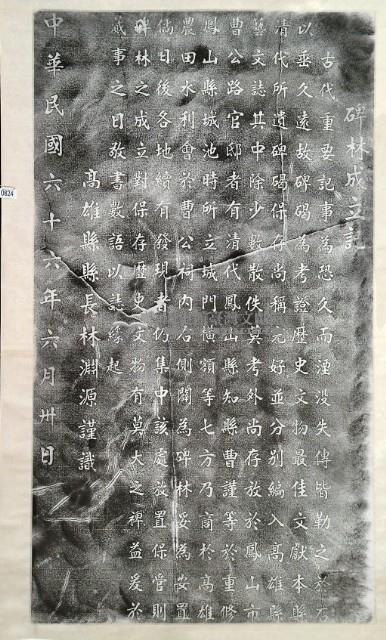 碑林成立記
古代重要記事為恐久而湮没失傳皆勒之於石
以垂久遠故碑碣為考證歷史文物最佳文獻本縣
清代所遺碑碣保存尚稱完好並分別編入高雄縣
藝文誌其中除少數散佚莫考外尚存放於鳳山市
曹公路官邸者有清代鳳山縣知縣曹謹等於重修
鳳山縣城池時所立城門橫額等七方乃商於高雄
農田水利會於曹公祠内右側闢為碑林妥為安置
倘日後各地續有發現者仍集中該處放置保管則
碑林之成立對保存歷史文物有莫大之裨益爰於
蕆事之日敬書數語以誌緣起
高雄縣縣長林淵源謹識
中華民國六十六年六月卅日
0824